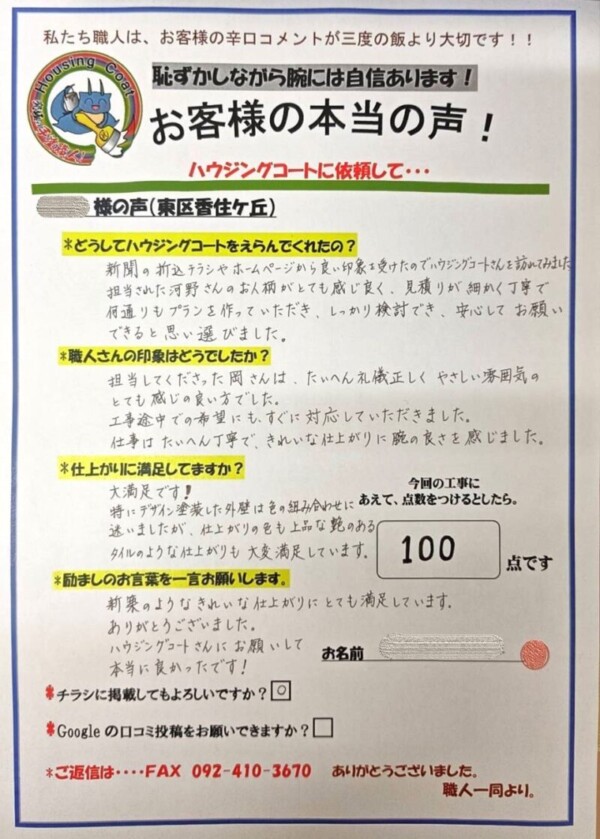 私たち職人は、お客様の辛口コメントが三度の飯より大切です！！
Housing Coat
恥ずかしながら腕には自信あります！
お客様の本当の声！
ハウジングコートに依頼して・・・
様の声(東区香住ケ丘)
*どうしてハウジングコートをえらんでくれたの？
新聞の折込チラシやホームページから良い印象を受けたのでハウジングコートさんを訪れてみました
担当された河野さんのお人柄がとても感じ良く、見積りが細かく丁寧で
何通りもプランを作っていただき、しっかり検討でき、安心してお願い
できると思い選びました。
*職人さんの印象はどうでしたか？
担当してくださった岡さんは、たいへん礼儀正しくやさしい雰囲気の
とても感じの良い方でした。
工事途中での希望にも、すぐに対応していただきました。
仕事はたいへん丁寧で、きれいな仕上がりに腕の良さを感じました。
*仕上がりに満足してますか？
大満足です！
特にデザイン塗装した外壁は色の組み合わせに
迷いましたが、仕上がりの色も上品な艶のある
タイルのような仕上がりも大変満足しています。
今回の工事に
あえて、点数をつけるとしたら。
100
点です
*励ましのお言葉を一言お願いします。
新築のようなきれいな仕上がりにとても満足しています。
ありがとうございました。
ハウジングコートさんにお願いして
本当に良かったです！
お名前
*チラシに掲載してもよろしいですか？○
*Googleの口コミ投稿をお願いできますか？
*ご返信は・・・・FAX 092-410-3670 ありがとうございました。
職人一同より。